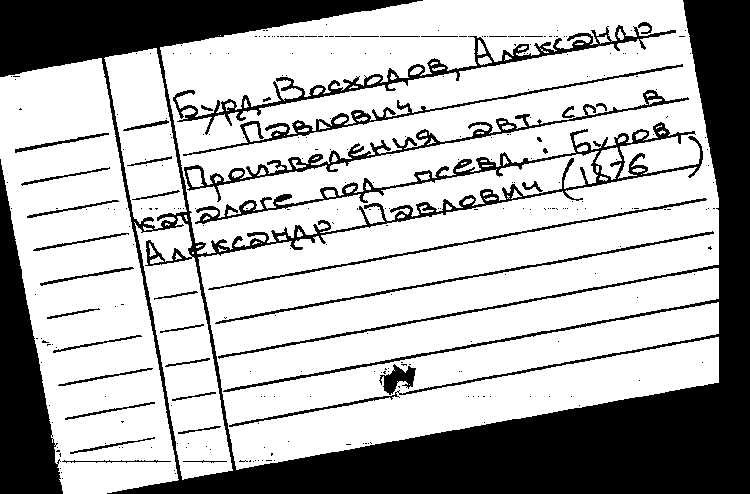 Бурд-Восходов, Александр
Павлович.
Произведения авт. см. в
каталоге под псевд.: Буров,
Александр Павлович (1876 )